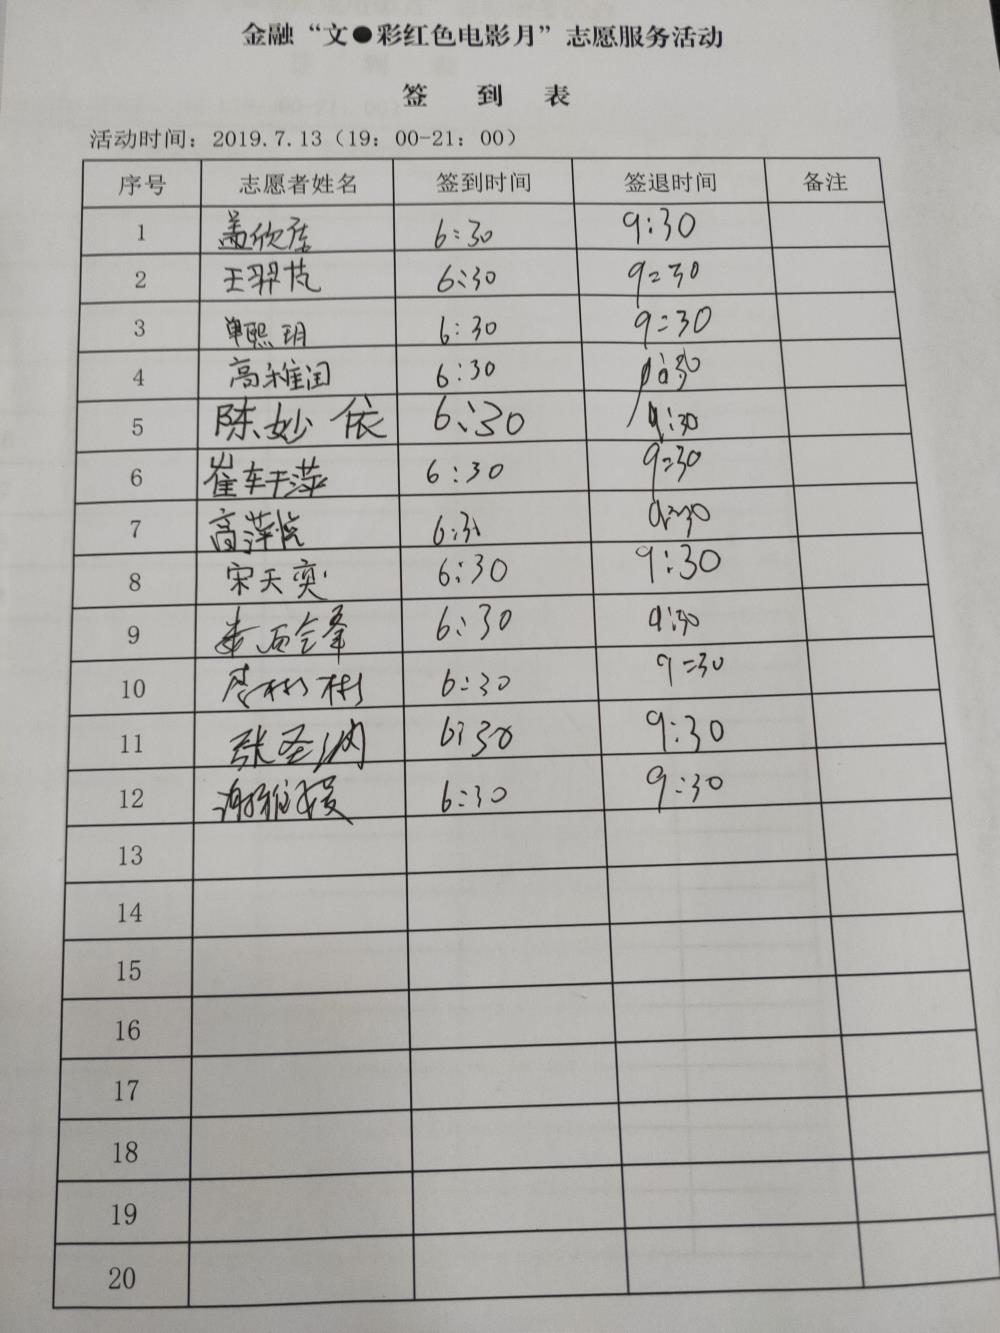 金融“文●彩红色电影月”志愿服务活动
签 到 表
活动时间：2019.7.13（19：00-21：00）
序号 志愿者姓名 签到时间 签退时间 备注
1 盖欣 6:30 9:30
2 王羿 6:30 9:30
3 单熙玥 6:30 9:30
4 高雅闰 6:30 9:30
5 陈妙依 6:30 9:30
6 崔车干萍 6:30 9:30
7 高萍悦 6:3 9:30
8 宋天奕 6:30 9:30
9 娄 6:30 9:30
10 彬彬 6:30 9:30
11 张圣 6:30 9:30
12 谢雅媛 6:30 9:30
13
14
15
16
17
18
19
20